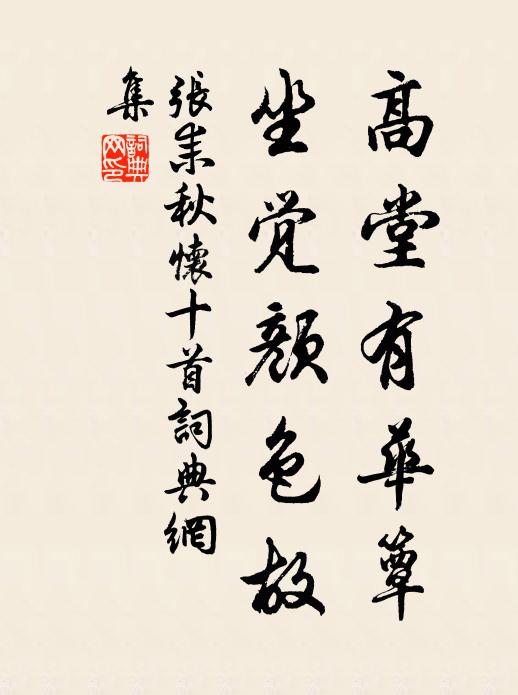 高堂有華簟
坐觉顔色故
張耒秋懷十首詞典網
集
詞典
网印